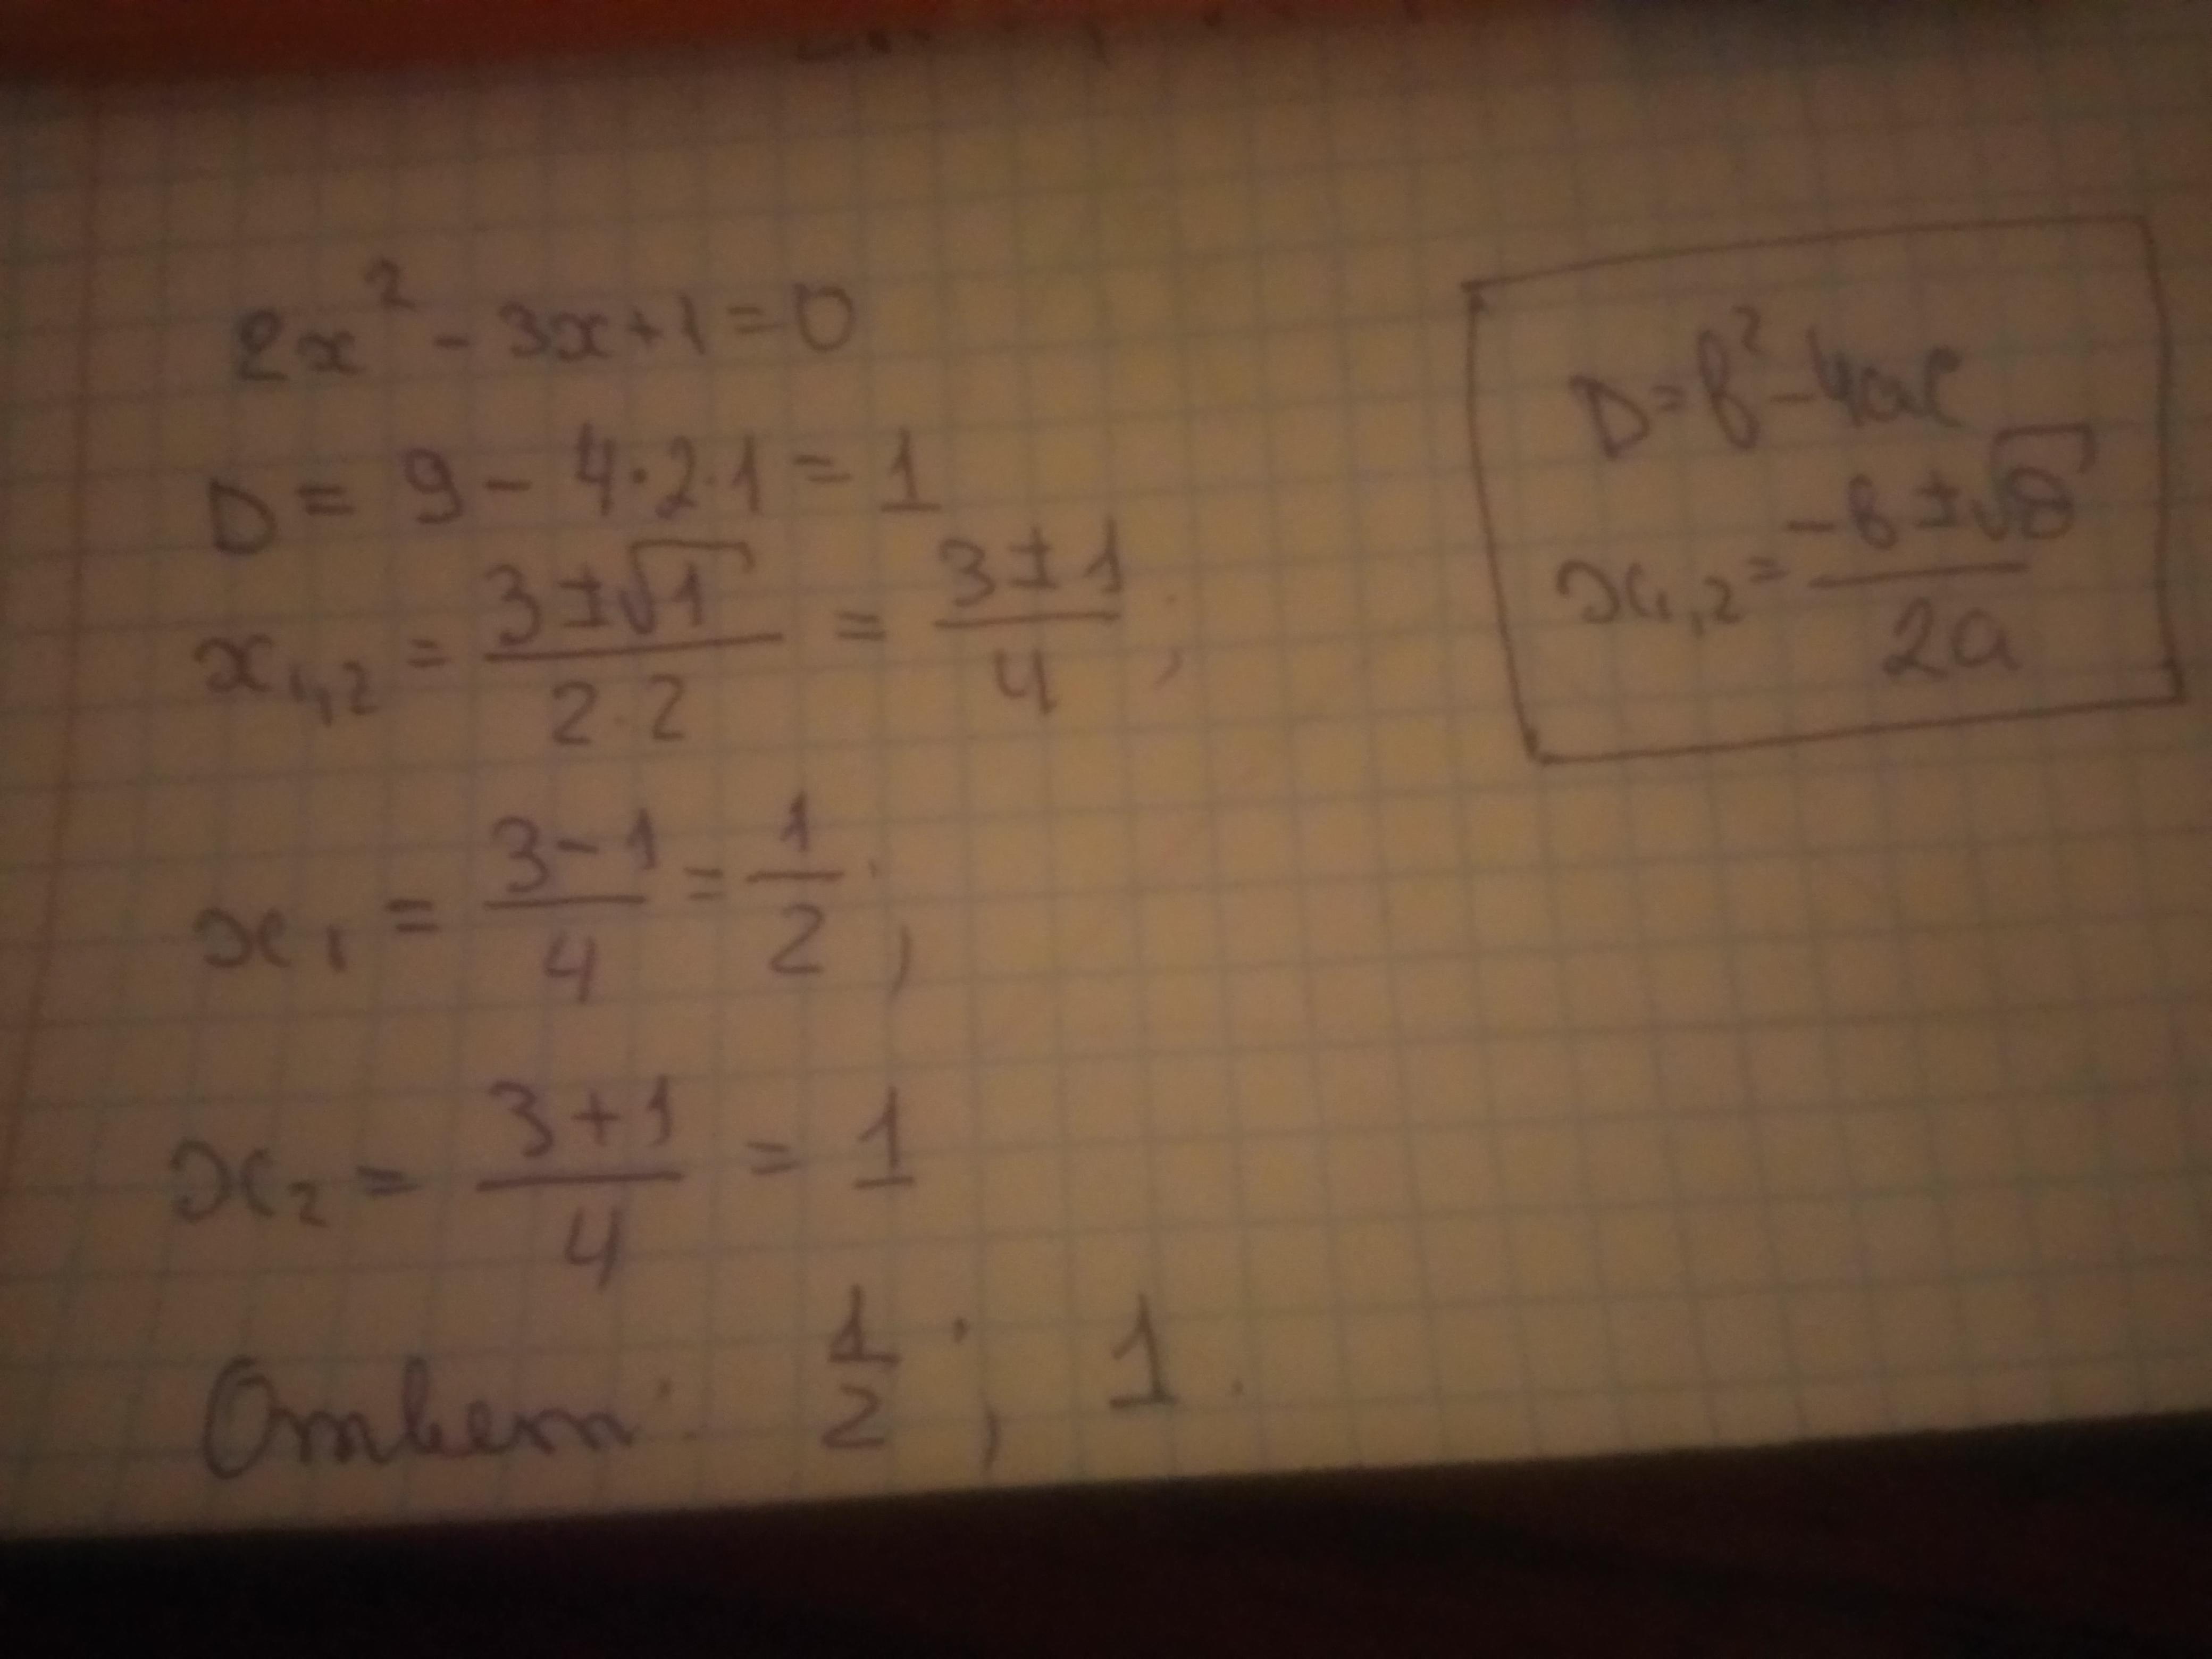 2x² - 3x + 1 = 0
D = 9 - 4·2·1 = 1
x₁,₂ = (3 ± √1)/(2·2) = (3 ± 1)/4;
x₁ = (3 - 1)/4 = 1/2;
x₂ = (3 + 1)/4 = 1
Ответ: 1/2; 1.
D = b² - 4ac
x₁,₂ = (-b ± √D)/(2a)